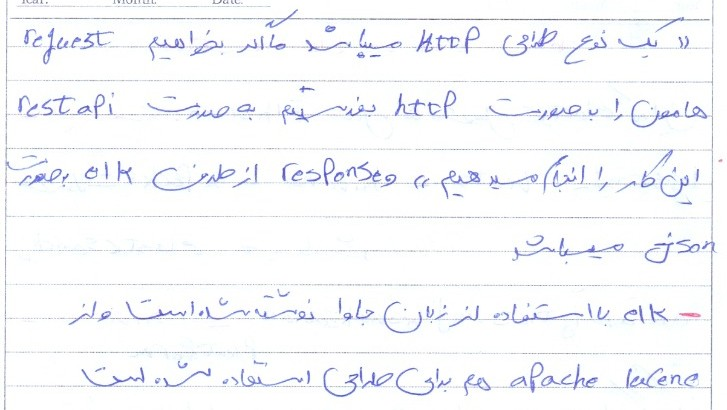 Year: Month: Date:
(( یک نوع طراحی HttP میباشد ما اگر بخواهیم request
هامون را به صورت http بفرستیم به صورت rest api
این کار را انجام میدهیم )) و response از طرف elk بصورت
json میباشد
- elk با استفاده از زبان جاوا نوشته شده است و از
apache lucene هم برای طراحی استفاده شده است